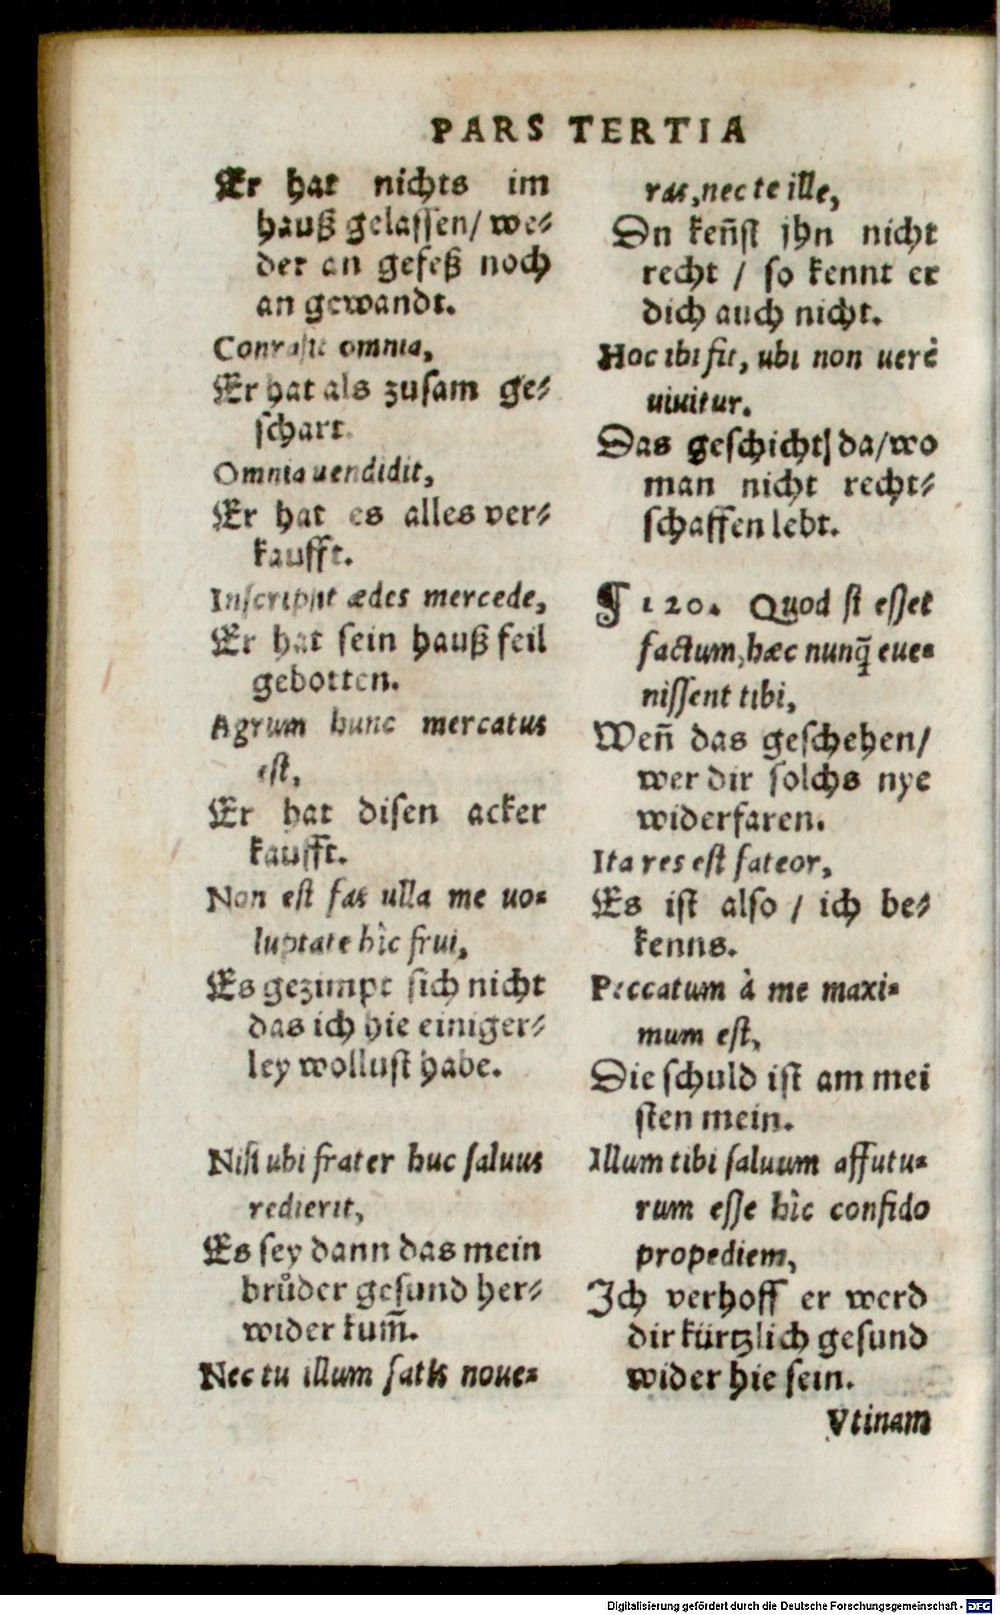 PARS TERTIA
Er hat nichts im
hauß gelassen/ we⸗
der an gefeß noch
an gewandt.
Conrasit omnia,
Er hat als zusam ge⸗
schart.
Omnia uendidit,
Er hat es alles ver⸗
kaufft.
Inscripsit ædes mercede,
Er hat sein hauß feil
gebotten.
Agrum hunc mercatus
est,
Er hat disen acker
kaufft.
Non est fas ulla me uo-
luptate hîc frui,
Es gezimpt sich nicht
das ich hie einiger⸗
ley wollust habe.
Nisi ubi frater huc saluus
redierit,
Es sey dann das mein
brůder gesund her⸗
wider kum̃.
Nec tu illum satis noue-
ras, nec te ille,
Du keñst jhn nicht
recht / so kennt er
dich auch nicht.
Hoc ibi fit, ubi non uerè
uiuitur.
Das geschicht/ da/wo
man nicht recht⸗
schaffen lebt.
¶ 120. Quod si esset
factum, hæc nunq̃ eue-
nissent tibi,
Weñ das geschehen/
wer dir solchs nye
widerfaren.
Ita res est fateor,
Es ist also / ich be⸗
kenns.
Peccatum à me maxi-
mum est,
Die schuld ist am mei
sten mein.
Illum tibi saluum affutu-
rum esse hîc confido
propediem,
Ich verhoff er werd
dir kürtzlich gesund
wider hie sein.
Vtinam
Digitalisierung gefördert durch die Deutsche Forschungsgemeinschaft - DFG